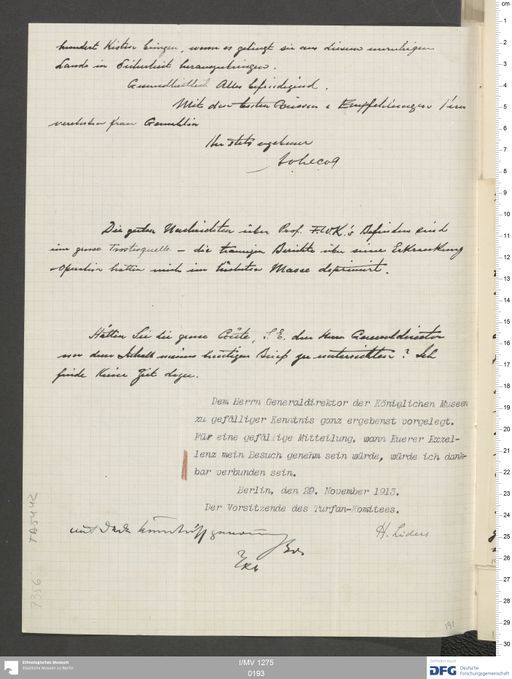 hundert Kisten bringen, wenn es gelingt sie aus diesem unruhigen
Lande in Sicherheit herauszubringen.
Gesundheitlich Alles befriedigend.
Mit den besten Grüssen & Empfehlungen Ihrer
verehrten Frau Gemahlin
Ihr stets ergebener
Lecoq
Die guten Nachrichten über Prof. F.W.K.'s Befinden sind
eine grosse Trostquelle – die traurigen Berichte über seine Erkrankung
& Operation hatten mich im höchsten Masse deprimirt.
Hätten Sie die grosse Güte, S.E. den Herrn Generaldirektor
von dem Inhalt meines heutigen Briefs zu unterrichten? Ich
finde keine Zeit dazu.
Dem Herrn Generaldirektor der Königlichen Museen
zu gefälliger Kenntnis ganz ergebenst vorgelegt.
Für eine gefällige Mitteilung, wann Euerer Exzel-
lenz mein Besuch genehm sein würde, würde ich dank-
bar verbunden sein.
Berlin, den 29. November 1913.
Der Vorsitzende des Turfan-Komitees.
H. Lüders
mit Dank Kenntniß genommen
TA 5442
7356
191
I/MV 1275
0193
Ethnologisches Museum
Staatliche Museen zu Berlin
Gefördert durch
DFG Deutsche
Forschungsgemeinschaft
cm
1
2
3
4
5
6
7
8
9
10
11
12
13
14
15
16
17
18
19
20
21
22
23
24
25
26
27
28
29
30